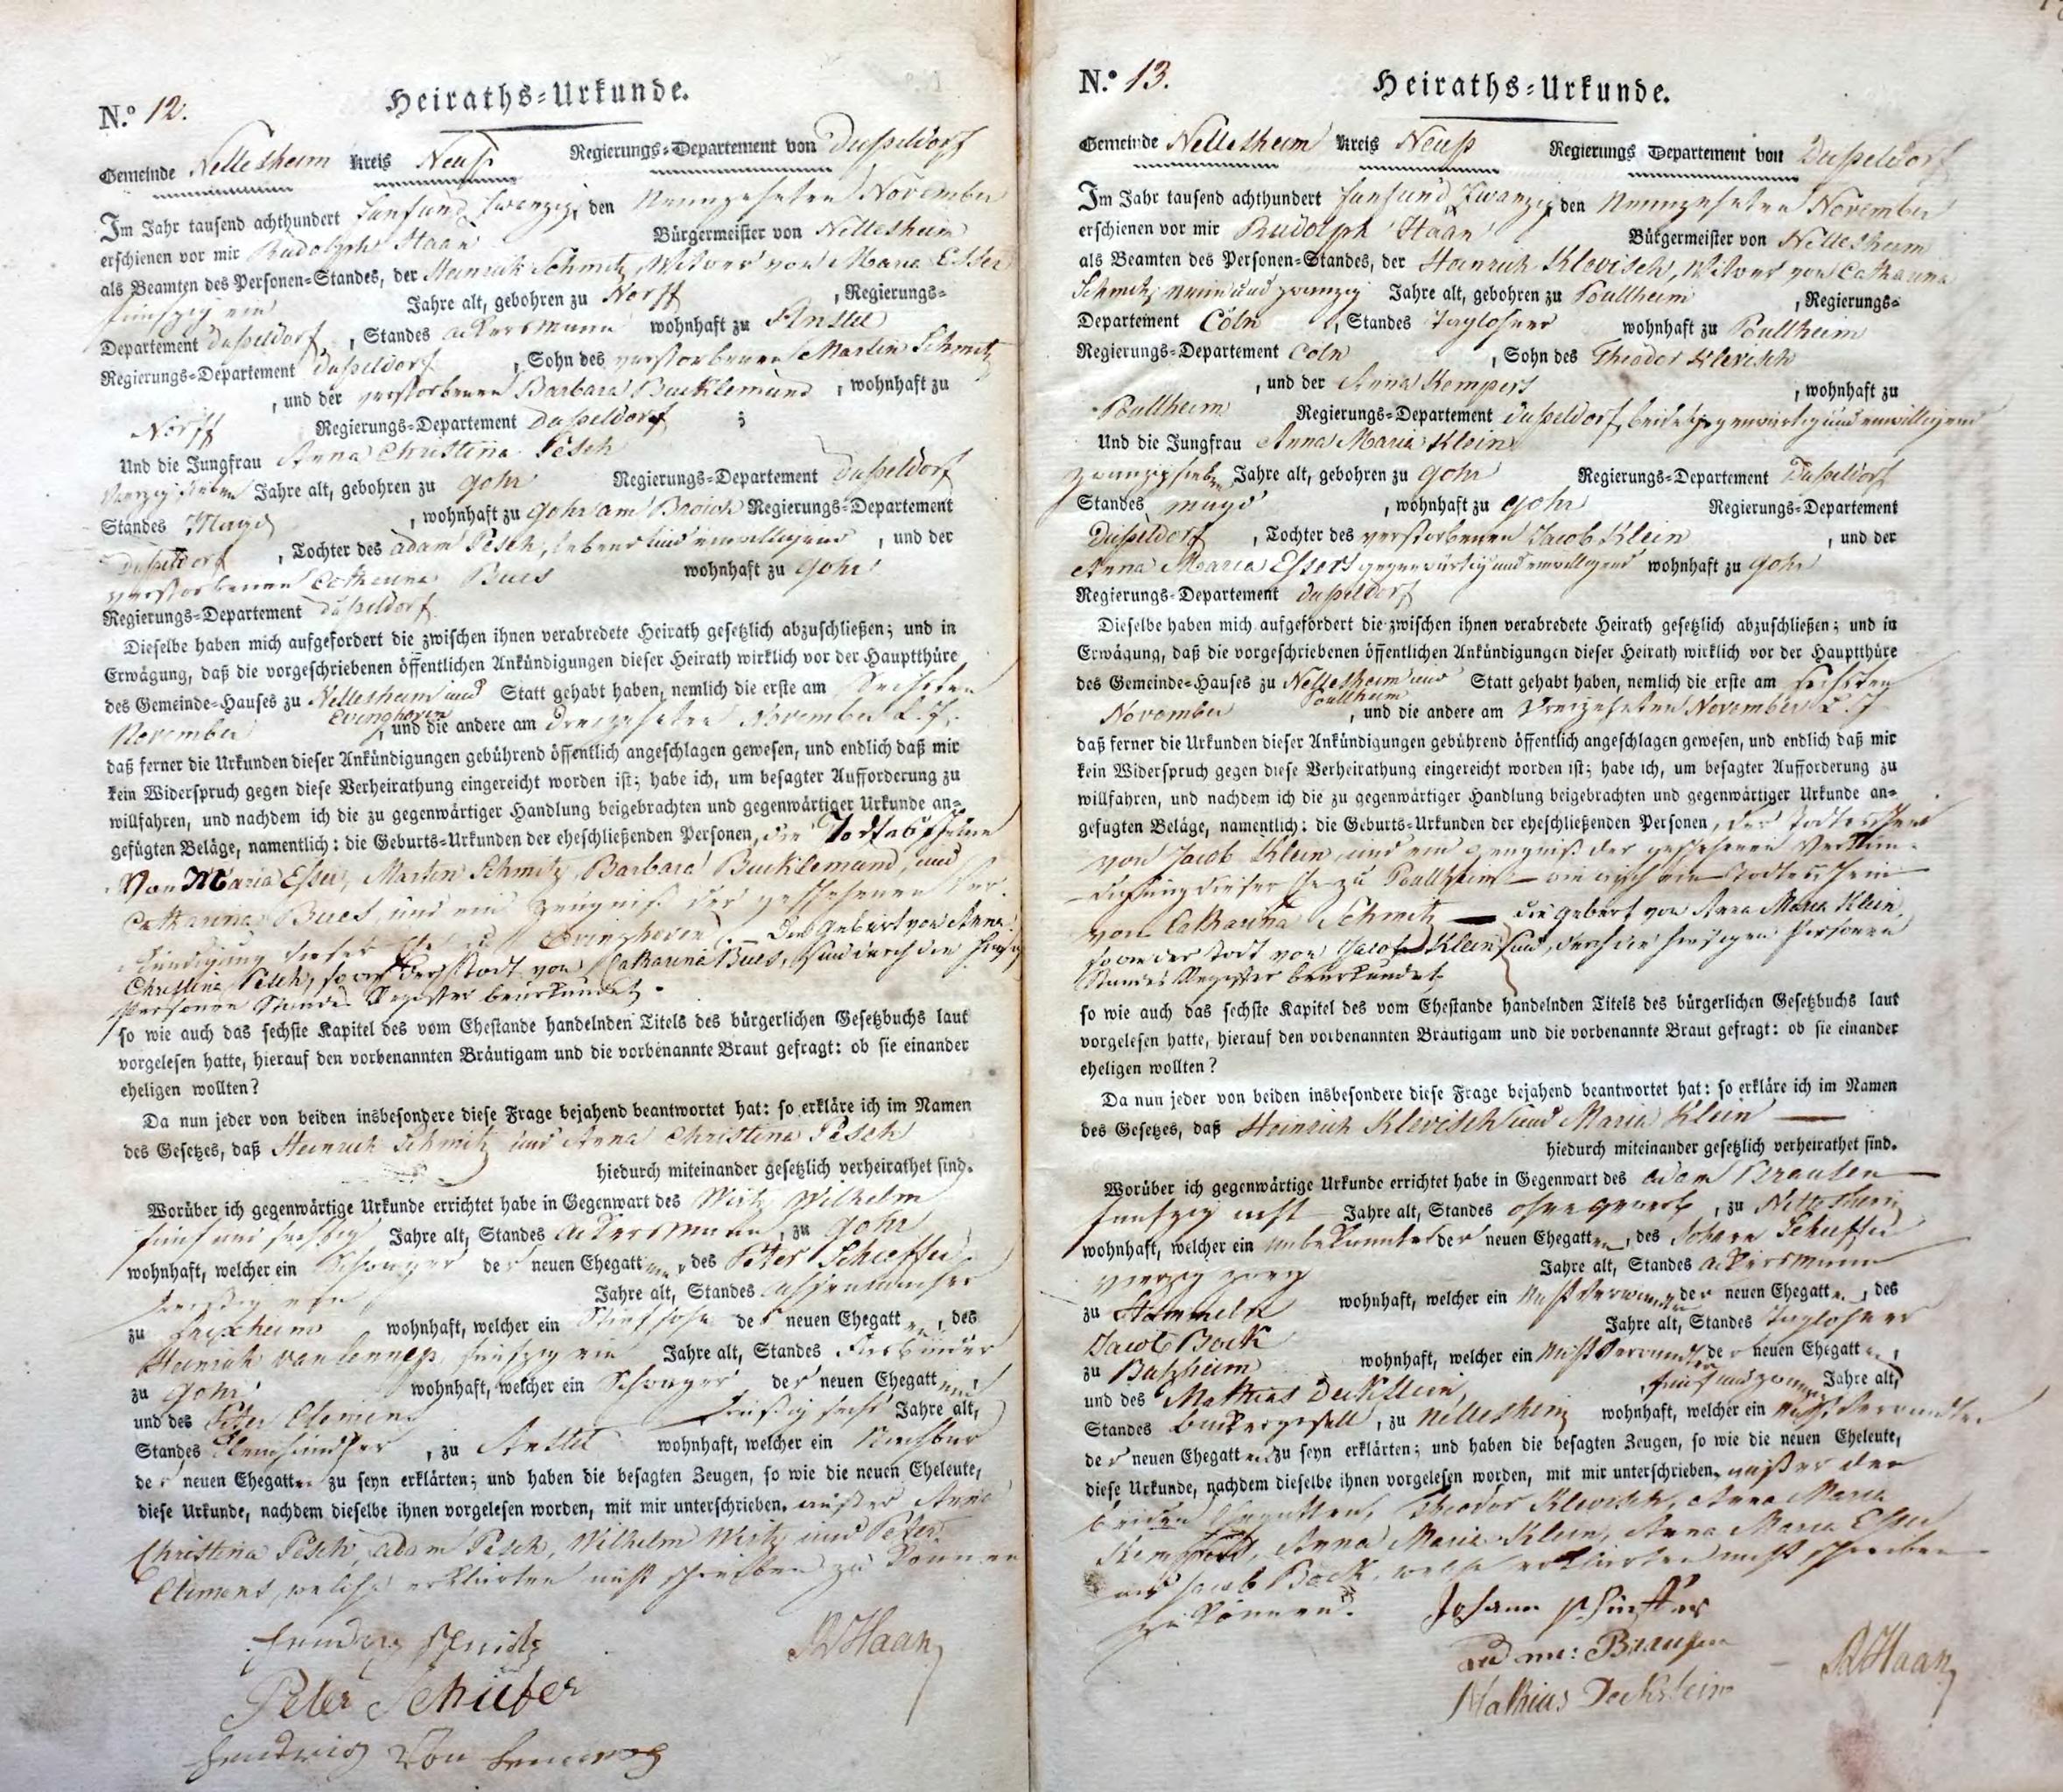 N.º 12.
Heiraths-Urkunde.
Gemeinde Nettesheim Kreis Neuß Regierungs-Departement von Dußeldorf
Im Jahr tausend achthundert fünfundzwanzig, den Neunzehnten November
erschienen vor mir Rudolph Haan Bürgermeister von Nettesheim
als Beamten des Personen-Standes, der Heinrich Schmitz Witwer von Maria Esser
fünfzig ein Jahre alt, gebohren zu Norff, Regierungs-
Departement Dußeldorf, Standes Ackersmann wohnhaft zu Anstel
Regierungs-Departement Dußeldorf, Sohn des verstorbenen Martin Schmitz
, und der verstorbenen Barbara Bucklemund, wohnhaft zu
Norff Regierungs-Departement Dußeldorf;
Und die Jungfrau Anna Christina Pesch
vierzig sieben Jahre alt, gebohren zu Gohr Regierungs-Departement Dußeldorf
Standes Magd, wohnhaft zu Gohr am Broich Regierungs-Departement
Dußeldorf, Tochter des Adam Pesch, lebend und einwilligend, und der
verstorbenen Catharina Bues wohnhaft zu Gohr
Regierungs-Departement Dußeldorf
Dieselbe haben mich aufgefordert die zwischen ihnen verabredete Heirath gesetzlich abzuschließen; und in
Erwägung, daß die vorgeschriebenen öffentlichen Ankündigungen dieser Heirath wirklich vor der Hauptthüre
des Gemeinde-Hauses zu Nettesheim und Statt gehabt haben, nemlich die erste am Sechsten
November Evinghoven, und die andere am dreizehnten November l. J.
daß ferner die Urkunden dieser Ankündigungen gebührend öffentlich angeschlagen gewesen, und endlich daß mir
kein Widerspruch gegen diese Verheirathung eingereicht worden ist; habe ich, um besagter Aufforderung zu
willfahren, und nachdem ich die zu gegenwärtiger Handlung beigebrachten und gegenwärtiger Urkunde an-
gefügten Beläge, namentlich: die Geburts-Urkunden der eheschließenden Personen, die Todtesscheine
von Maria Esser, Martin Schmitz, Barbara Bucklemund, und
Catharina Bues, und ein Zeugniß der geschehenen Ver-
kündigung dieser Ehe zu Evinghoven. Die Geburt von Anna
Christina Pesch, so wie der Todt von Catharina Bues, sind durch die hiesigen
Personen Standes Register beurkundet.
so wie auch das sechste Kapitel des vom Ehestande handelnden Titels des bürgerlichen Gesetzbuchs laut
vorgelesen hatte, hierauf den vorbenannten Bräutigam und die vorbenannte Braut gefragt: ob sie einander
eheligen wollten?
Da nun jeder von beiden insbesondere diese Frage bejahend beantwortet hat: so erkläre ich im Namen
des Gesetzes, daß Heinrich Schmitz und Anna Christina Pesch
hiedurch miteinander gesetzlich verheirathet sind.
Worüber ich gegenwärtige Urkunde errichtet habe in Gegenwart des Wirtz Wilhelm
fünf und sechzig Jahre alt, Standes Ackersmann, zu Gohr
wohnhaft, welcher ein Schwager der neuen Ehegattinn, des Peter Schieffer
dreißig ein Jahre alt, Standes
zu Frixheim wohnhaft, welcher ein Stiefsohn des neuen Ehegatten, des
Heinrich van Lennep, fünfzig ein Jahre alt, Standes Faßbinder
zu Gohr wohnhaft, welcher ein Schwager der neuen Ehegattinn,
und des Peter Clemens dreißig sechs Jahre alt,
Standes, zu Anstel wohnhaft, welcher ein Nachbar
der neuen Ehegatten zu seyn erklärten; und haben die besagten Zeugen, so wie die neuen Eheleute,
diese Urkunde, nachdem dieselbe ihnen vorgelesen worden, mit mir unterschrieben, außer Anna
Christina Pesch, Adam Pesch, Wilhelm Wirtz und Peter
Clemens, welche erklärten nicht schreiben zu können
Peter Schiefer
RHaan
N.º 13.
Heiraths-Urkunde.
Gemeinde Nettesheim Kreis Neuß Regierungs Departement von Dußeldorf
Im Jahr tausend achthundert fünfundzwanzig den Neunzehnten November
erschienen vor mir Rudolph Haan Bürgermeister von Nettesheim
als Beamten des Personen-Standes, der Heinrich Klevisch, Witwer von Catharina
Schmitz, neunundzwanzig Jahre alt, gebohren zu Poullheim, Regierungs-
Departement Cöln, Standes Taglohner wohnhaft zu Poullheim
Regierungs-Departement Cöln, Sohn des Theodor Klevisch
, und der Anna Kempers, wohnhaft zu
Poullheim Regierungs-Departement Dußeldorf, beide gegenwärtig und einwilligend
Und die Jungfrau Anna Maria Klein
zwanzigsieben Jahre alt, gebohren zu Gohr Regierungs-Departement Dußeldorf
Standes Magd, wohnhaft zu Gohr Regierungs-Departement
Dußeldorf, Tochter des verstorbenen Jacob Klein, und der
Anna Maria Essers gegenwärtig und einwilligend wohnhaft zu Gohr
Regierungs-Departement Dußeldorf
Dieselbe haben mich aufgefordert die zwischen ihnen verabredete Heirath gesetzlich abzuschließen; und in
Erwägung, daß die vorgeschriebenen öffentlichen Ankündigungen dieser Heirath wirklich vor der Hauptthüre
des Gemeinde-Hauses zu Nettesheim und Poullheim Statt gehabt haben, nemlich die erste am sechsten
November, und die andere am dreizehnten November l. J.
daß ferner die Urkunden dieser Ankündigungen gebührend öffentlich angeschlagen gewesen, und endlich daß mir
kein Widerspruch gegen diese Verheirathung eingereicht worden ist; habe ich, um besagter Aufforderung zu
willfahren, und nachdem ich die zu gegenwärtiger Handlung beigebrachten und gegenwärtiger Urkunde an-
gefügten Beläge, namentlich: die Geburts-Urkunden der eheschließenden Personen, der Todtesschein
von Jacob Klein, und ein Zeugniß der geschehenen Verkün-
digung dieser Ehe zu Poullheim — wie auch den Todtesschein
von Catharina Schmitz — die Geburt von Anna Maria Klein,
so wie der Todt von Jacob Klein sind, durch die hiesigen Personen
Standes Register beurkundet.
so wie auch das sechste Kapitel des vom Ehestande handelnden Titels des bürgerlichen Gesetzbuchs laut
vorgelesen hatte, hierauf den vorbenannten Bräutigam und die vorbenannte Braut gefragt: ob sie einander
eheligen wollten?
Da nun jeder von beiden insbesondere diese Frage bejahend beantwortet hat: so erkläre ich im Namen
des Gesetzes, daß Heinrich Klevisch und Maria Klein —
hiedurch miteinander gesetzlich verheirathet sind.
Worüber ich gegenwärtige Urkunde errichtet habe in Gegenwart des Adam Brausen
fünfzig acht Jahre alt, Standes ohne Gewerb, zu Nettesheim
wohnhaft, welcher ein unbekannter der neuen Ehegatten, des Johann Scheffer
vierzig zwey Jahre alt, Standes Ackersmann
zu Stommeln wohnhaft, welcher ein nicht Verwandter der neuen Ehegatten, des
Jacob Bock Jahre alt, Standes Taglohner
zu Butzheim wohnhaft, welcher ein nicht Verwandter der neuen Ehegatten,
und des Mathias Deckstein, fünfundzwanzig Jahre alt,
Standes Beckergesell, zu Nettesheim wohnhaft, welcher ein nicht Verwandter
der neuen Ehegatten zu seyn erklärten; und haben die besagten Zeugen, so wie die neuen Eheleute,
diese Urkunde, nachdem dieselbe ihnen vorgelesen worden, mit mir unterschrieben, außer den
beiden Ehegatten, Theodor Klevisch, Anna Maria
Kempers, Anna Maria Klein, Anna Maria Esser
und Jacob Bock, welche erklärten nicht schreiben
zu können.
Johann
Brausen
Mathias Deckstein
RHaan